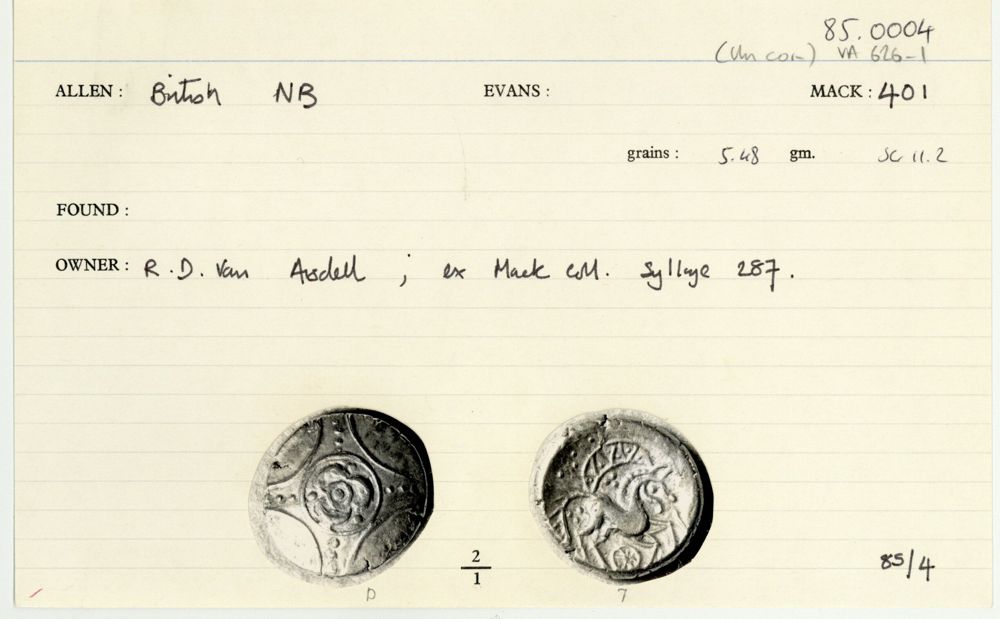 85.0004
(Un coin) VA 626-1
ALLEN : British NB EVANS : MACK : 401
grains : 5.48 gm. SC 11.2
FOUND :
OWNER : R.D. Van Arsdell ; ex Mack coll. Sylloge 287.
2
1
85/4
D 7